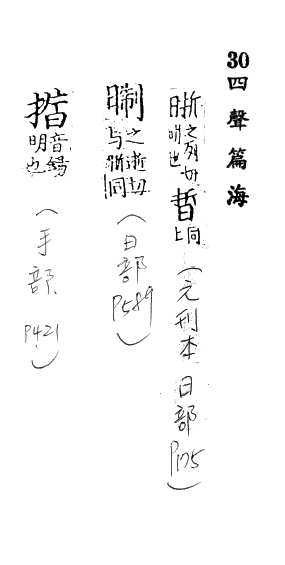 30四聲篇海
晣之列切明也晢同上（元刊本日部P175）
之逝切与晣同（日部P589）
音錫明也（手部P421）